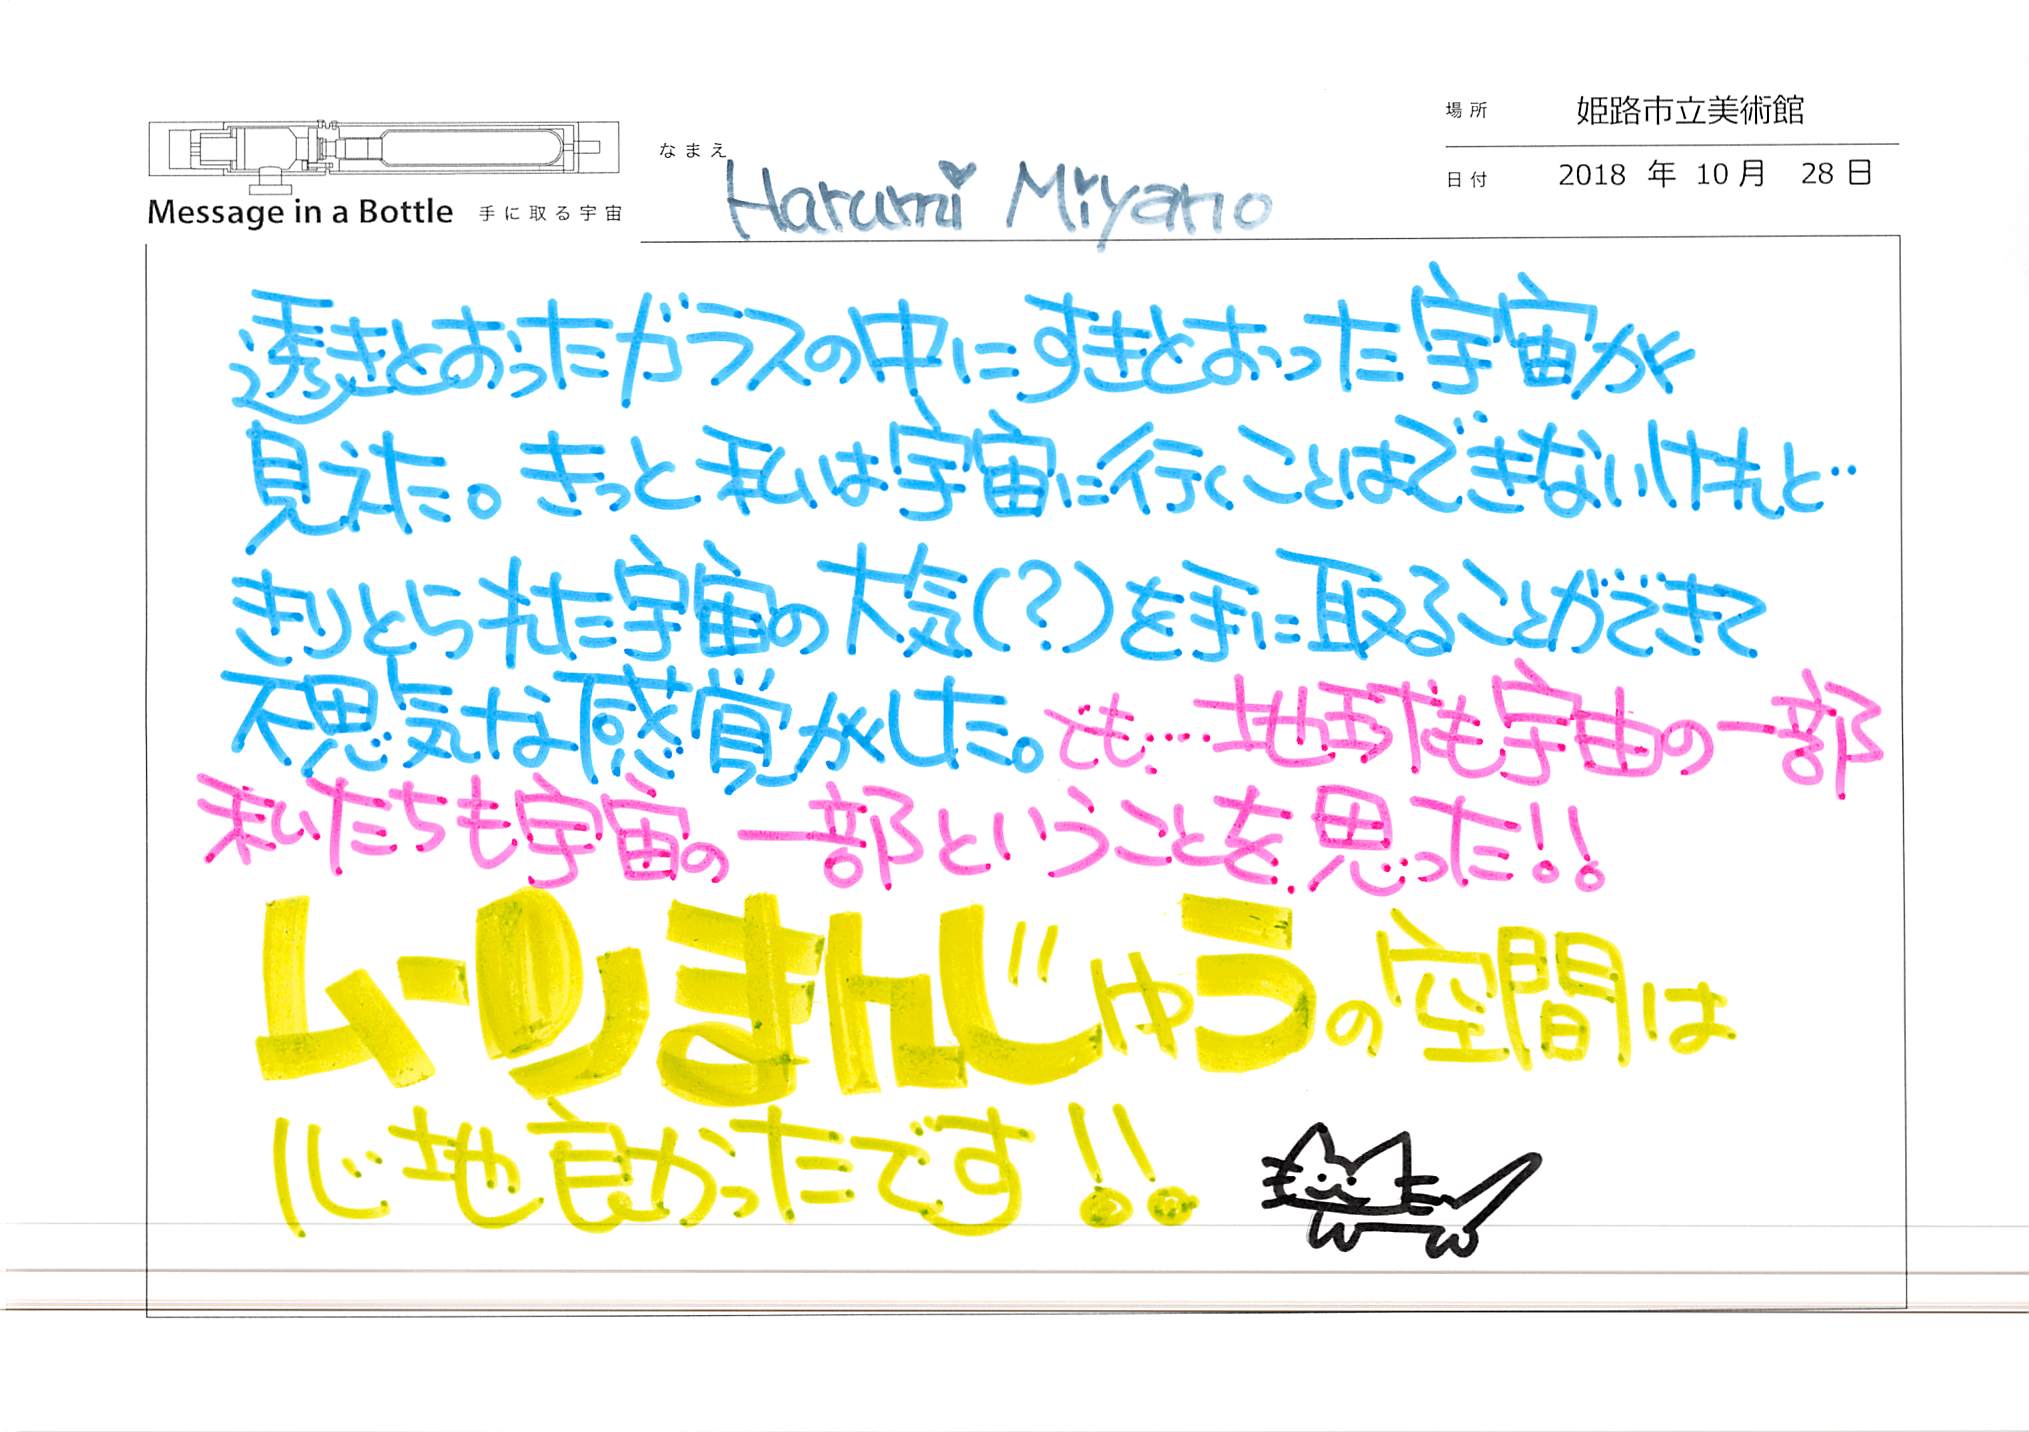 場所 姫路市立美術館
なまえ Harumi Miyano
日付 2018 年 10 月 28 日
Message in a Bottle 手に取る宇宙
透きとおったガラスの中にすきとおった宇宙が
見えた。きっと私は宇宙に行くことはできないけれど…
きりとられた宇宙の大気(?)を手に取ることができて
不思気な感覚がした。でも…地球も宇宙の一部
私たちも宇宙の一部ということを思った!!
ムーりまんじゅうの空間は
心地良かったです!!